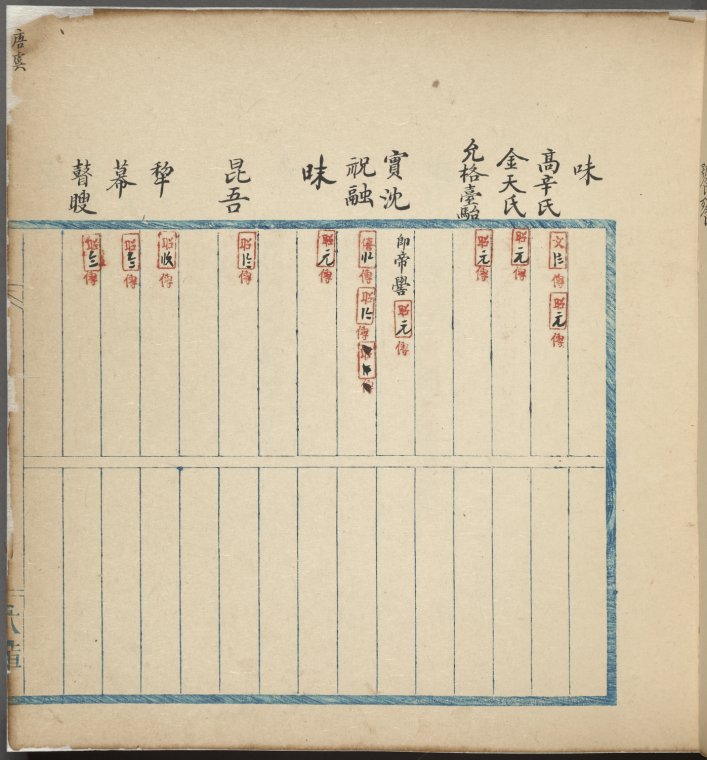 味
高辛氏
文 傳 昭元傳
金天氏
昭元傳
允格臺駘
昭元傳
實沈
即帝嚳 昭元傳
祝融
僖 傳 昭 傳
昧
昭元傳
昆吾
昭 傳
犂
昭 傳
幕
昭 傳
瞽瞍
昭 傳
唐虞